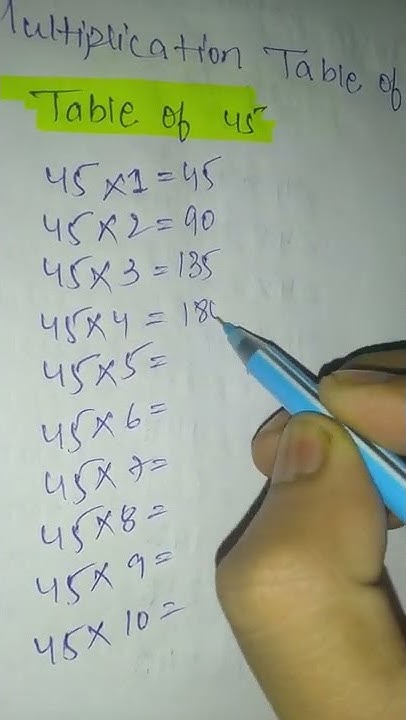 Multiplication Table of
Table of 45
45×1=45
45×2=90
45×3=135
45×4=180
45×5=
45×6=
45×7=
45×8=
45×9=
45×10=